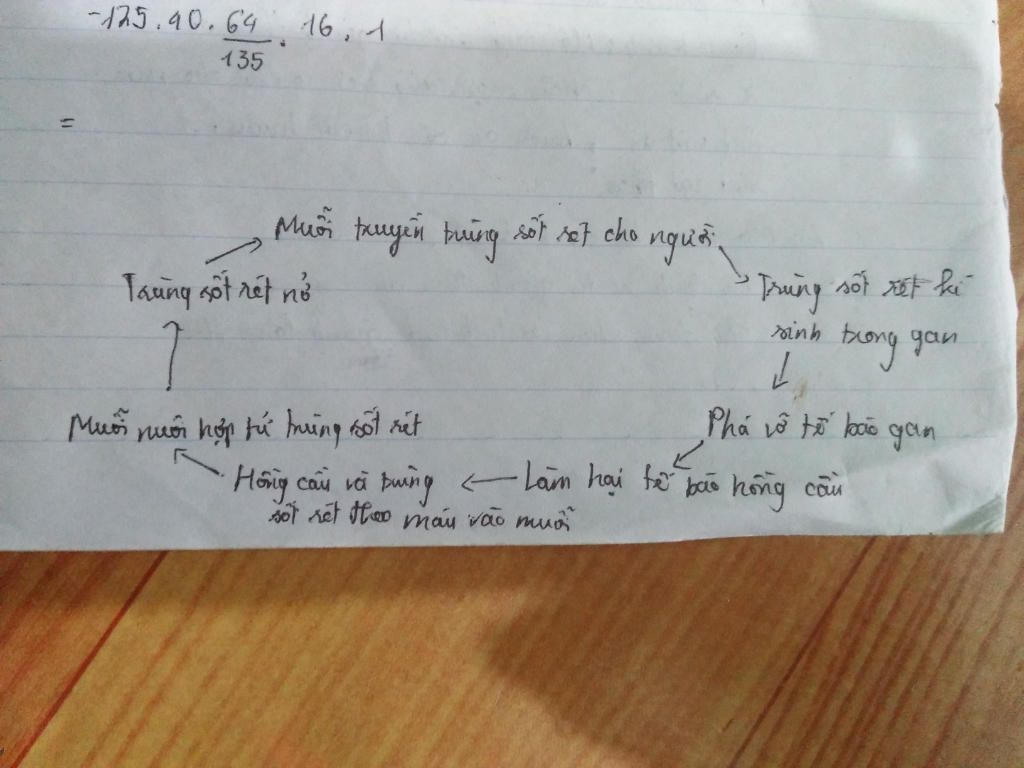 -125.40. 64/135 . 16 . 1
=
Muỗi truyền trùng sốt rét cho người
Trùng sốt rét nở
Trùng sốt rét kí
sinh trong gan
Muỗi nuôi hợp tử trùng sốt rét
Phá vỡ tế bào gan
Hồng cầu và trùng
Làm hại tế bào hồng cầu
sốt rét theo máu vào muỗi